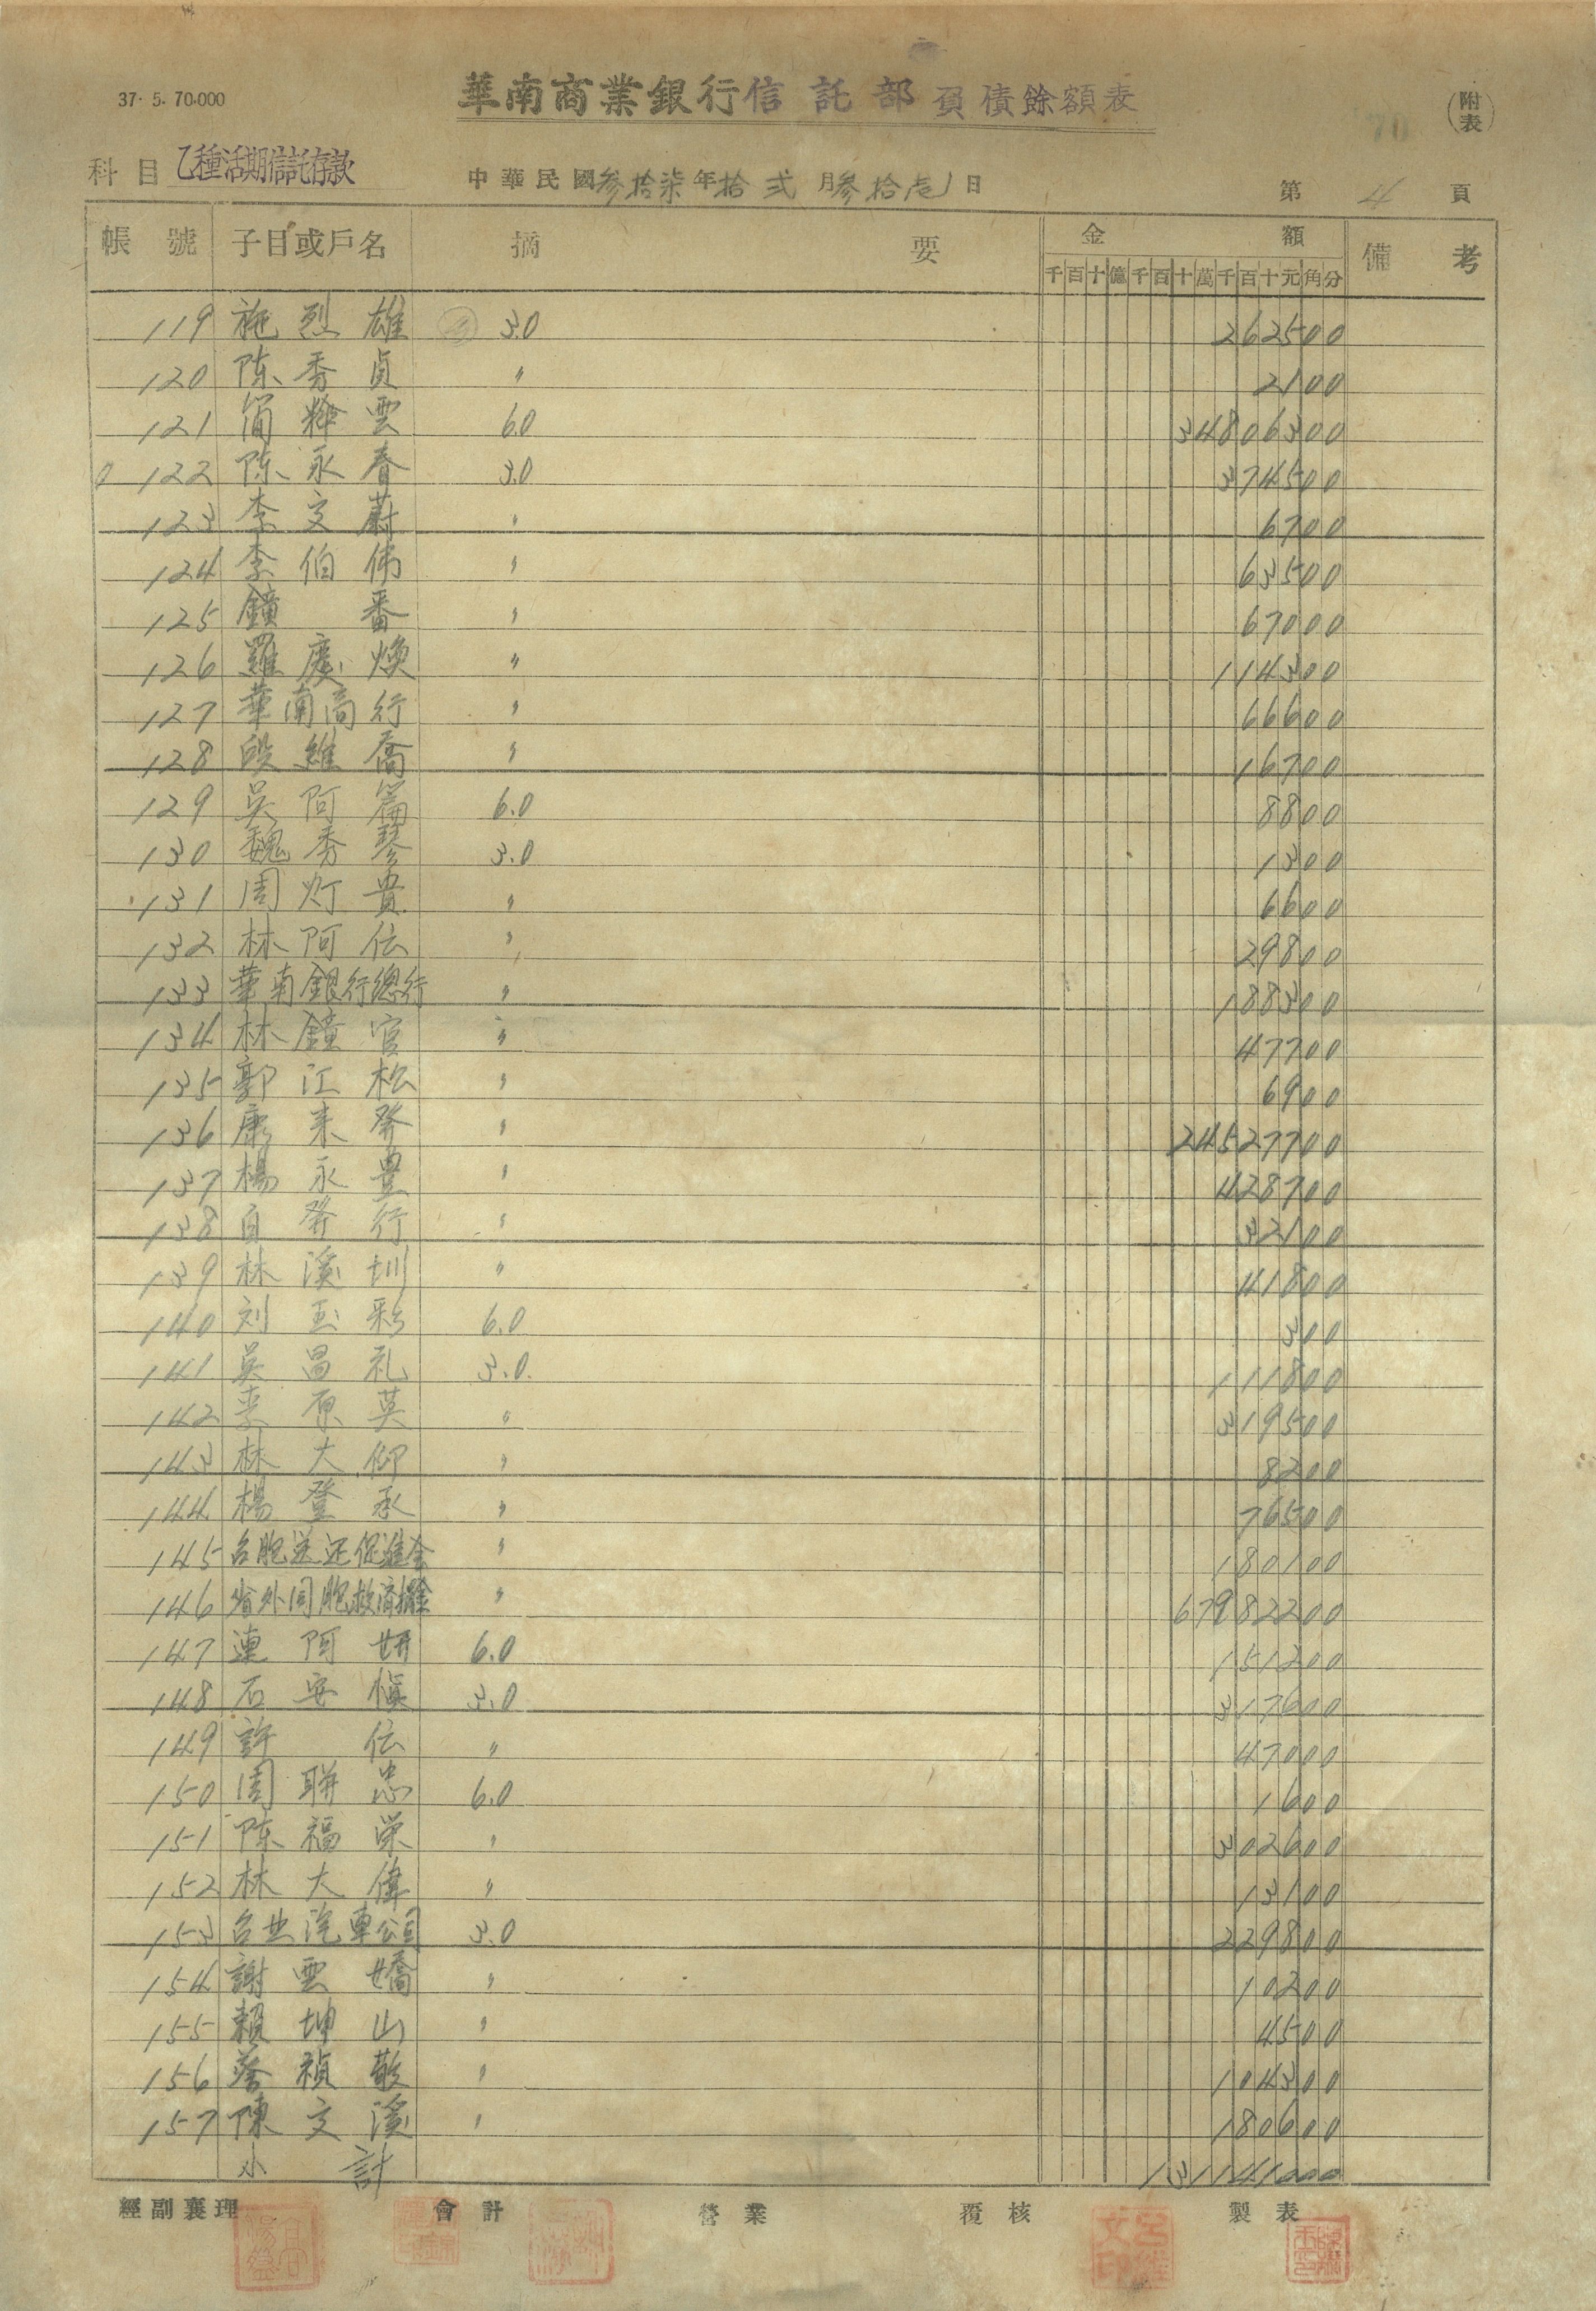 37. 5. 70.000
華南商業銀行信託部負債餘額表
(附表)
科目 乙種活期信託存款
中華民國參拾柒年拾弍月參拾壱日
第 4 頁
帳號 子目或戶名 摘要 金額 備考
千百十億千百十萬千百十元角分
119 施烈雄 3.0 262500
120 陈秀貞 〃 2100
121 簡釋雲 6.0 34806300
122 陈永春 3.0 374500
123 李文蔚 〃 6700
124 李伯偉 〃 63500
125 鐘番 〃 67000
126 羅慶煥 〃 114300
127 華南商行 〃 66600
128 段維喬 〃 16700
129 吳阿篇 6.0 8800
130 魏秀琴 3.0 1300
131 周灯貴 〃 6600
132 林阿伝 〃 29800
133 華南銀行總行 〃 188300
134 林鐘官 〃 47700
135 郭江松 〃 6900
136 康来發 〃 24527700
137 楊永豊 〃 428700
138 自發行 〃 32100
139 林溪圳 〃 41800
140 刘玉彩 6.0 300
141 吳昌礼 3.0 111800
142 原英 〃 319500
143 林大仰 〃 8200
144 楊登承 〃 76500
145 台胞送还促進会 〃 180100
146 省外同胞救済 〃 67982200
147 連阿妍 6.0 151200
148 石安慎 3.0 317600
149 許伝 〃 47000
150 周聯忠 6.0 1600
151 陈福栄 〃 302600
152 林大偉 〃 13100
153 台北汽車公司 3.0 229800
154 謝雲嬌 〃 10200
155 賴坤山 〃 4500
156 蔡禎敬 〃 104300
157 陳文溪 〃 180600
小計 131141000
經副襄理 會計 營業 覆核 製表